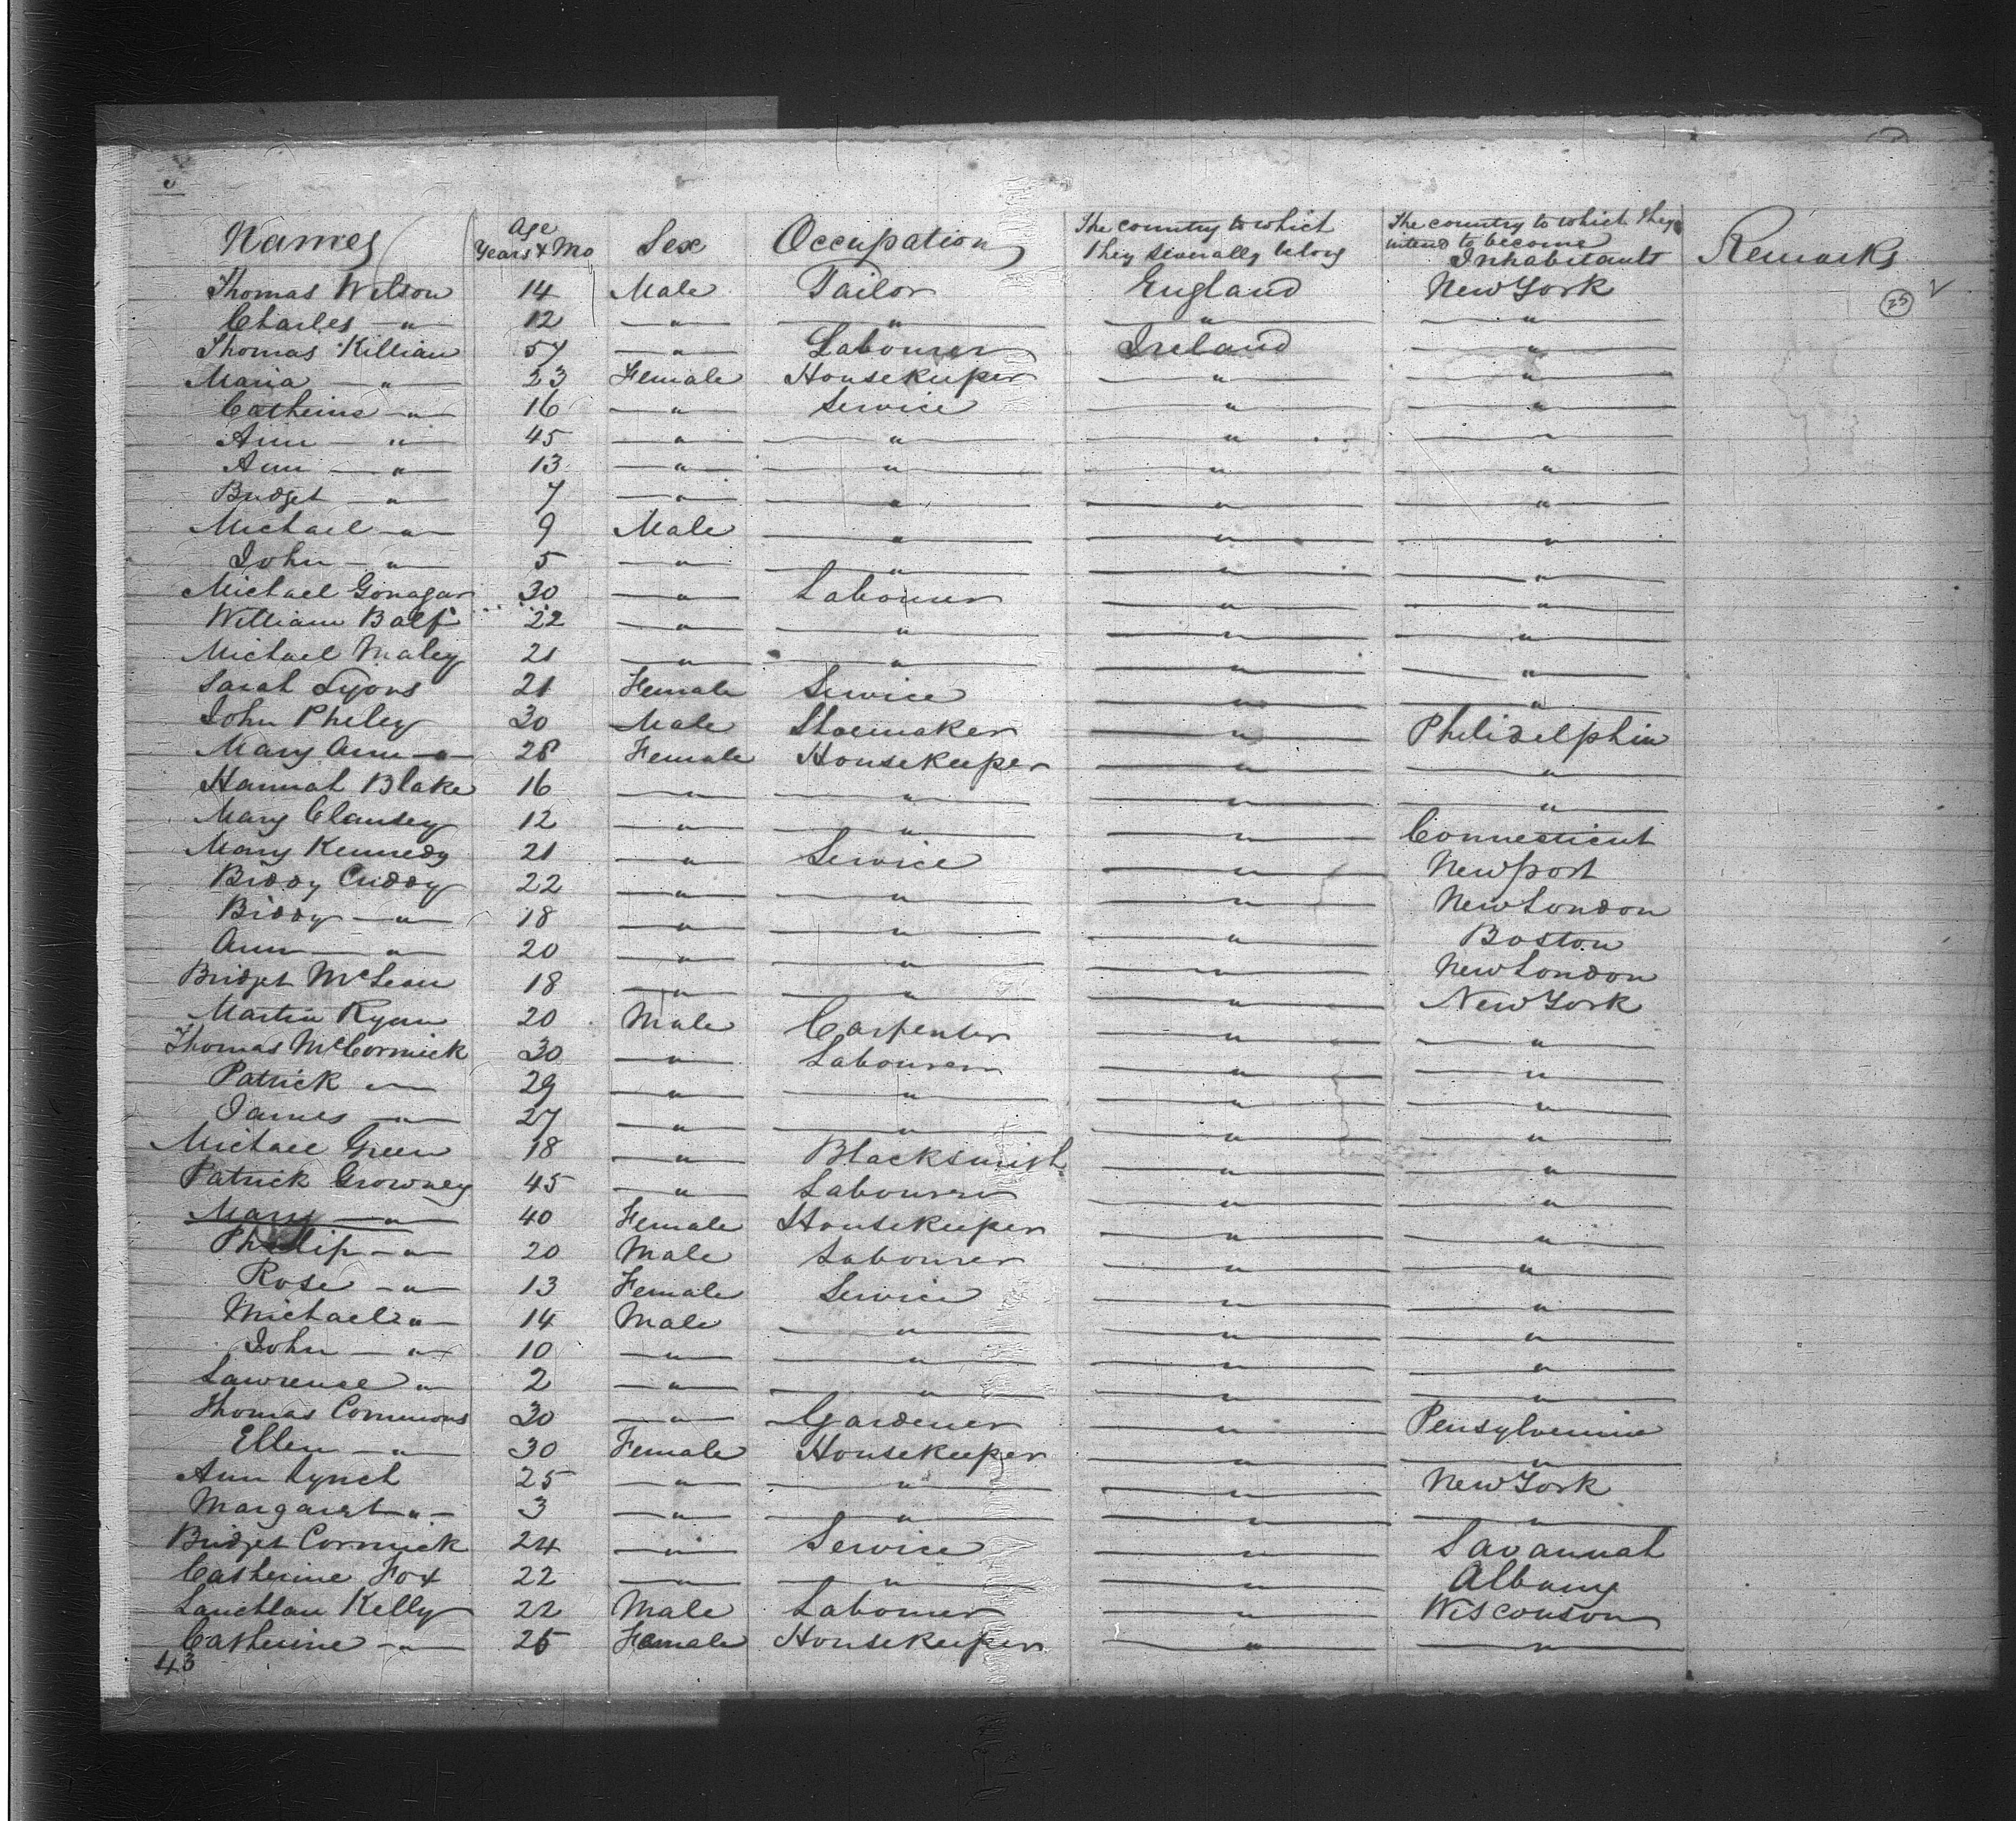 Names Age Years & Mo Sex Occupation The country to which they severally belong The country to which they intend to become Inhabitants Remarks
Thomas Wilson 14 Male Tailor England New York 25
Charles — " — 12 — " — — " — — " — — " —
Thomas Killian 57 — " — Labourer Ireland — " —
Maria — " — 23 Female Housekeeper — " — — " —
Catherine — " — 16 — " — Service — " — — " —
Ann — " — 45 — " — — " — — " — — " —
Ann — " — 13 — " — — " — — " — — " —
Bridget — " — 7 — " — — " — — " — — " —
Michael — " — 9 Male — " — — " — — " —
John — " — 5 — " — — " — — " — — " —
Michael Gonagar 30 — " — Labourer — " — — " —
William Balf 22 — " — — " — — " — — " —
Michael Maley 21 — " — — " — — " — — " —
Sarah Lyons 21 Female Service — " — — " —
John Pheley 30 Male Shoemaker — " — Philidelphia
Mary Ann — " — 28 Female Housekeeper — " — — " —
Hannah Blake 16 — " — — " — — " — — " —
Mary Clansey 12 — " — — " — — " — Connecticut
Mary Kennedy 21 — " — Service — " — Newport
Biddy Cuddy 22 — " — — " — — " — New London
Biddy — " — 18 — " — — " — — " — Boston
Ann — " — 20 — " — — " — — " — New London
Bridget McLean 18 — " — — " — — " — New York
Martin Ryan 20 Male Carpenter — " — — " —
Thomas McCormick 30 — " — Labourer — " — — " —
Patrick — " — 29 — " — — " — — " — — " —
James — " — 27 — " — — " — — " — — " —
Michael Green 18 — " — Blacksmith — " — — " —
Patrick Growney 45 — " — Labourer — " — — " —
Mary — " — 40 Female Housekeeper — " — — " —
Philip — " — 20 Male Labourer — " — — " —
Rose — " — 13 Female Service — " — — " —
Michael " — 14 Male — " — — " — — " —
John — " — 10 — " — — " — — " — — " —
Lawrence " — 2 — " — — " — — " — — " —
Thomas Commons 30 — " — Gardener — " — Pensylvenine
Ellen — " — 30 Female Housekeeper — " — — " —
Ann Lynch 25 — " — — " — — " — New York
Margaret " — 3 — " — — " — — " — — " —
Bridget Cormick 24 — " — Service — " — Savannah
Catherine Fox 22 — " — — " — — " — Albany
Lauchlan Kelly 22 Male Labourer — " — Wisconson
Catherine — " — 25 Female Housekeeper — " — — " —
43